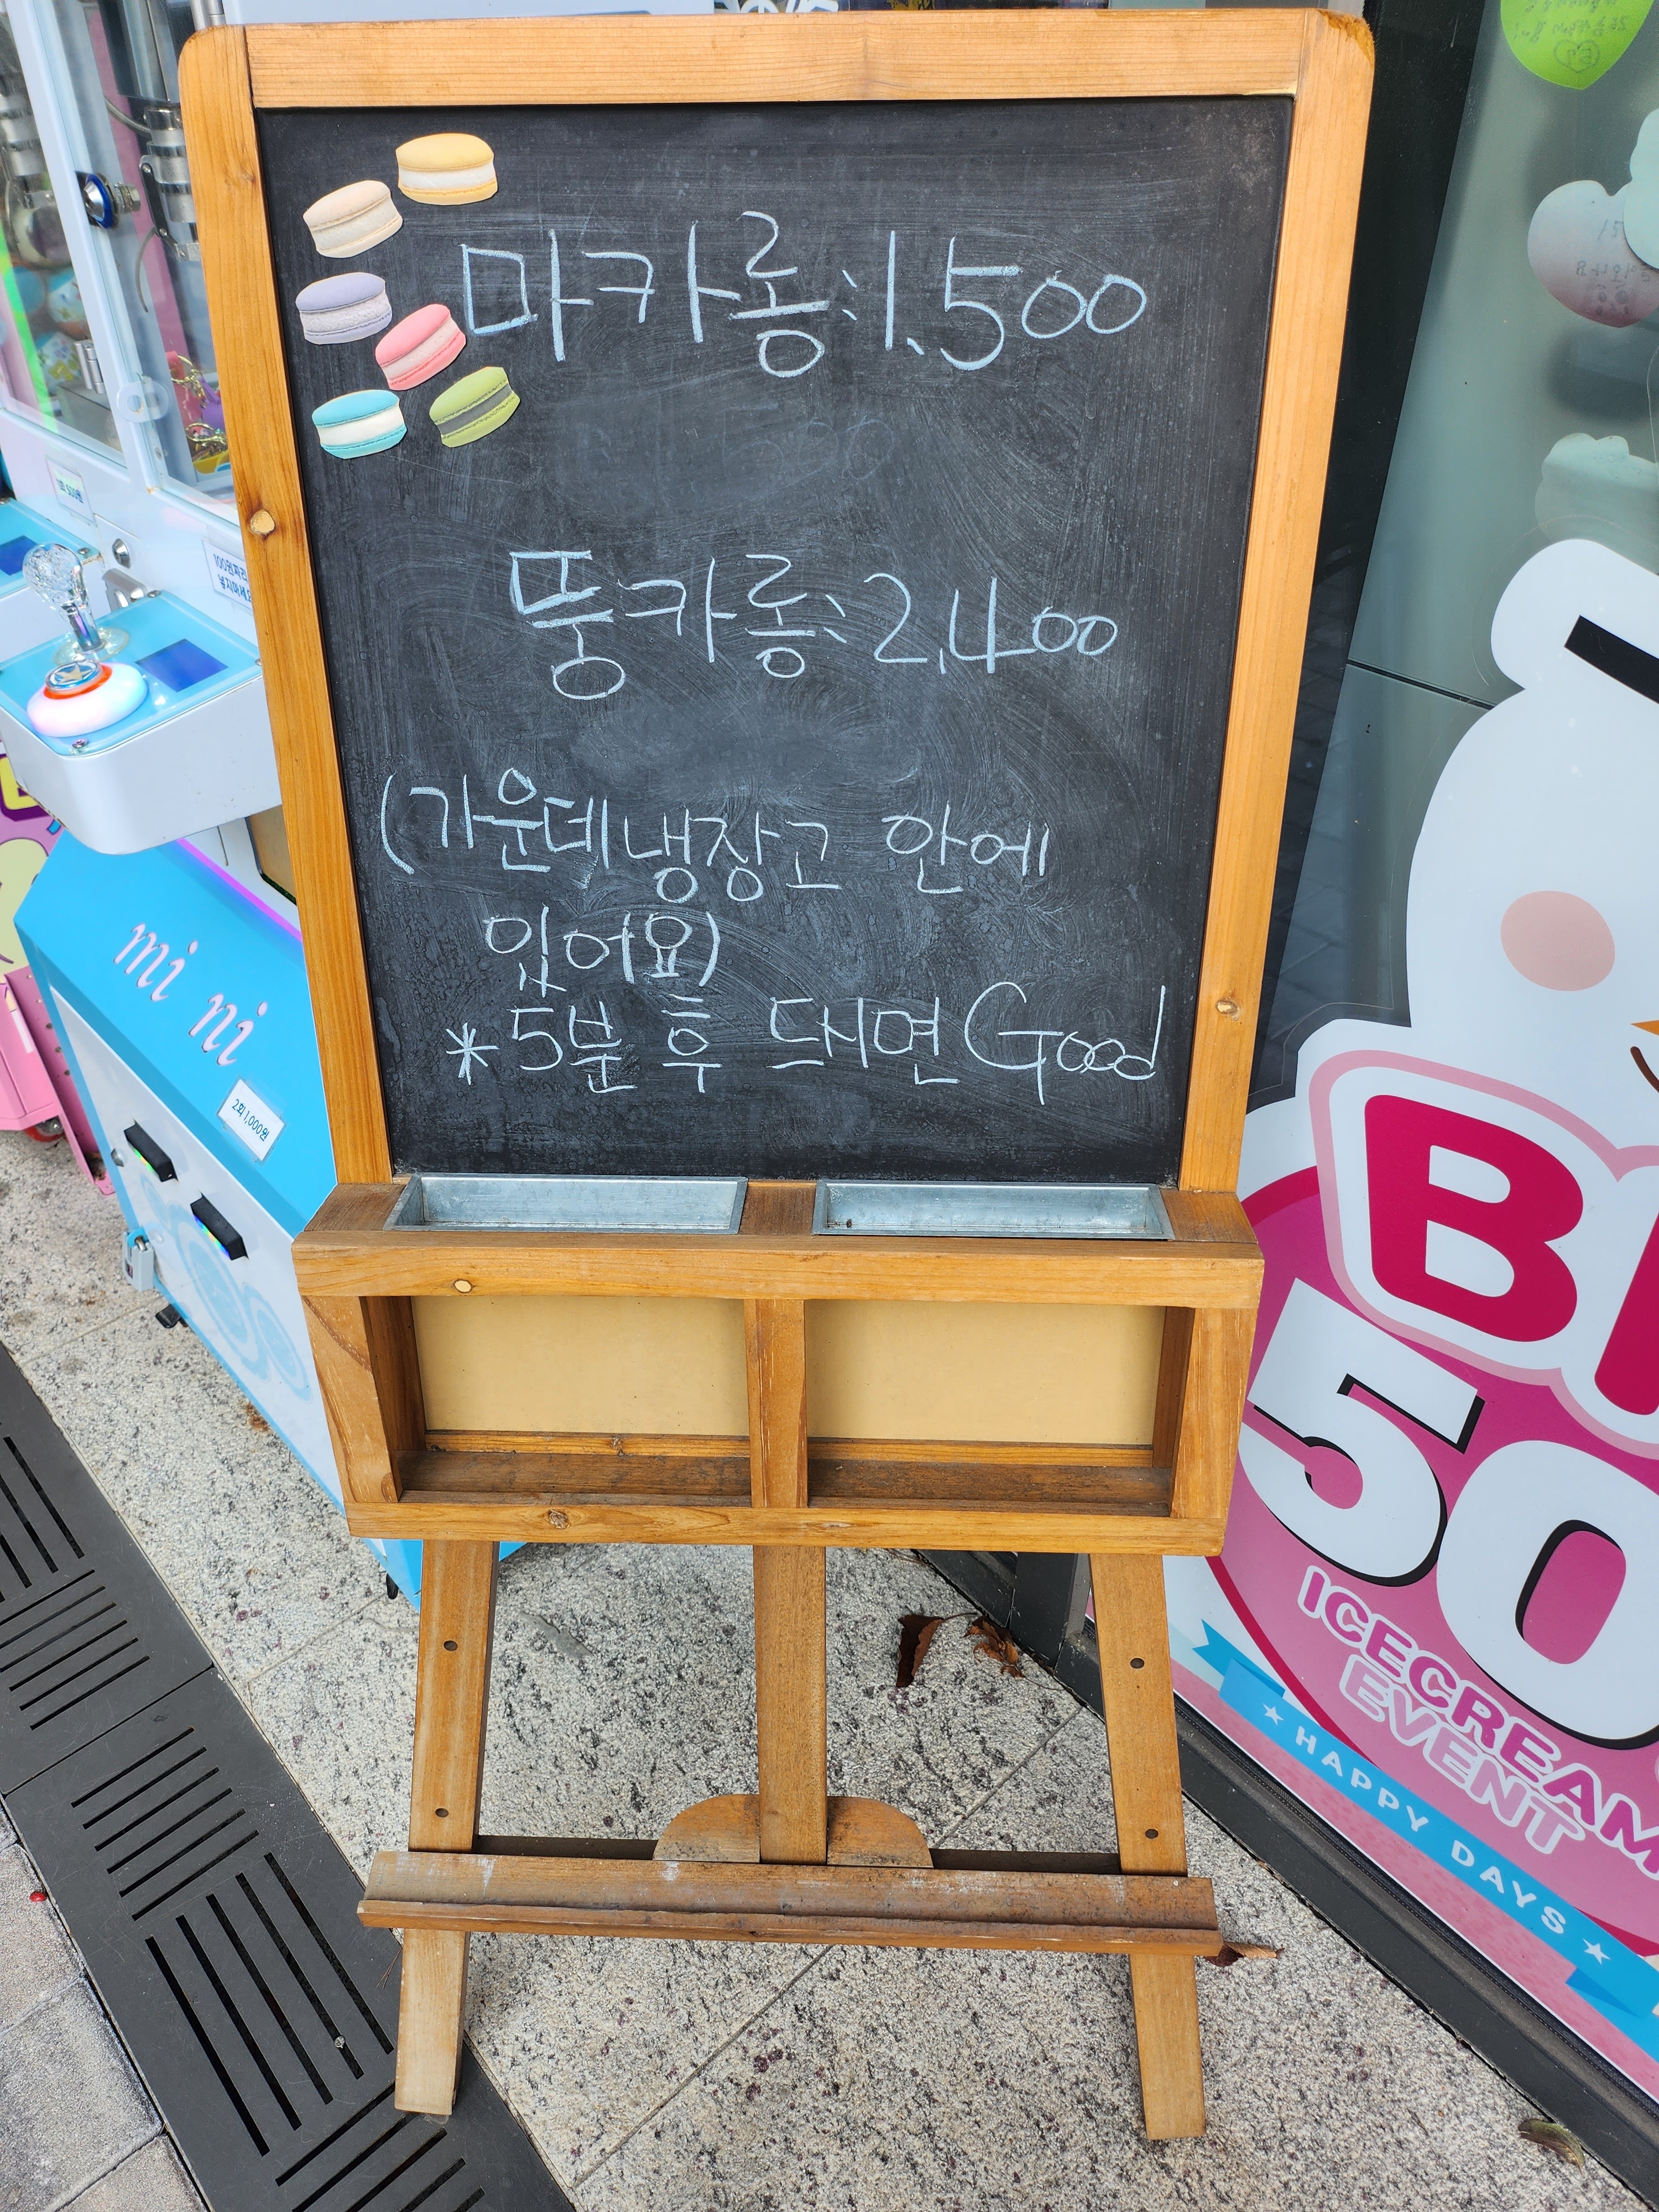 마카롱:1,500
뚱카롱:2,400
(가운데 냉장고 안에
있어요)
*5분 후 드시면 Good
mini
2회 1,000원
50
ICECREAM
EVENT
★ HAPPY DAYS ★